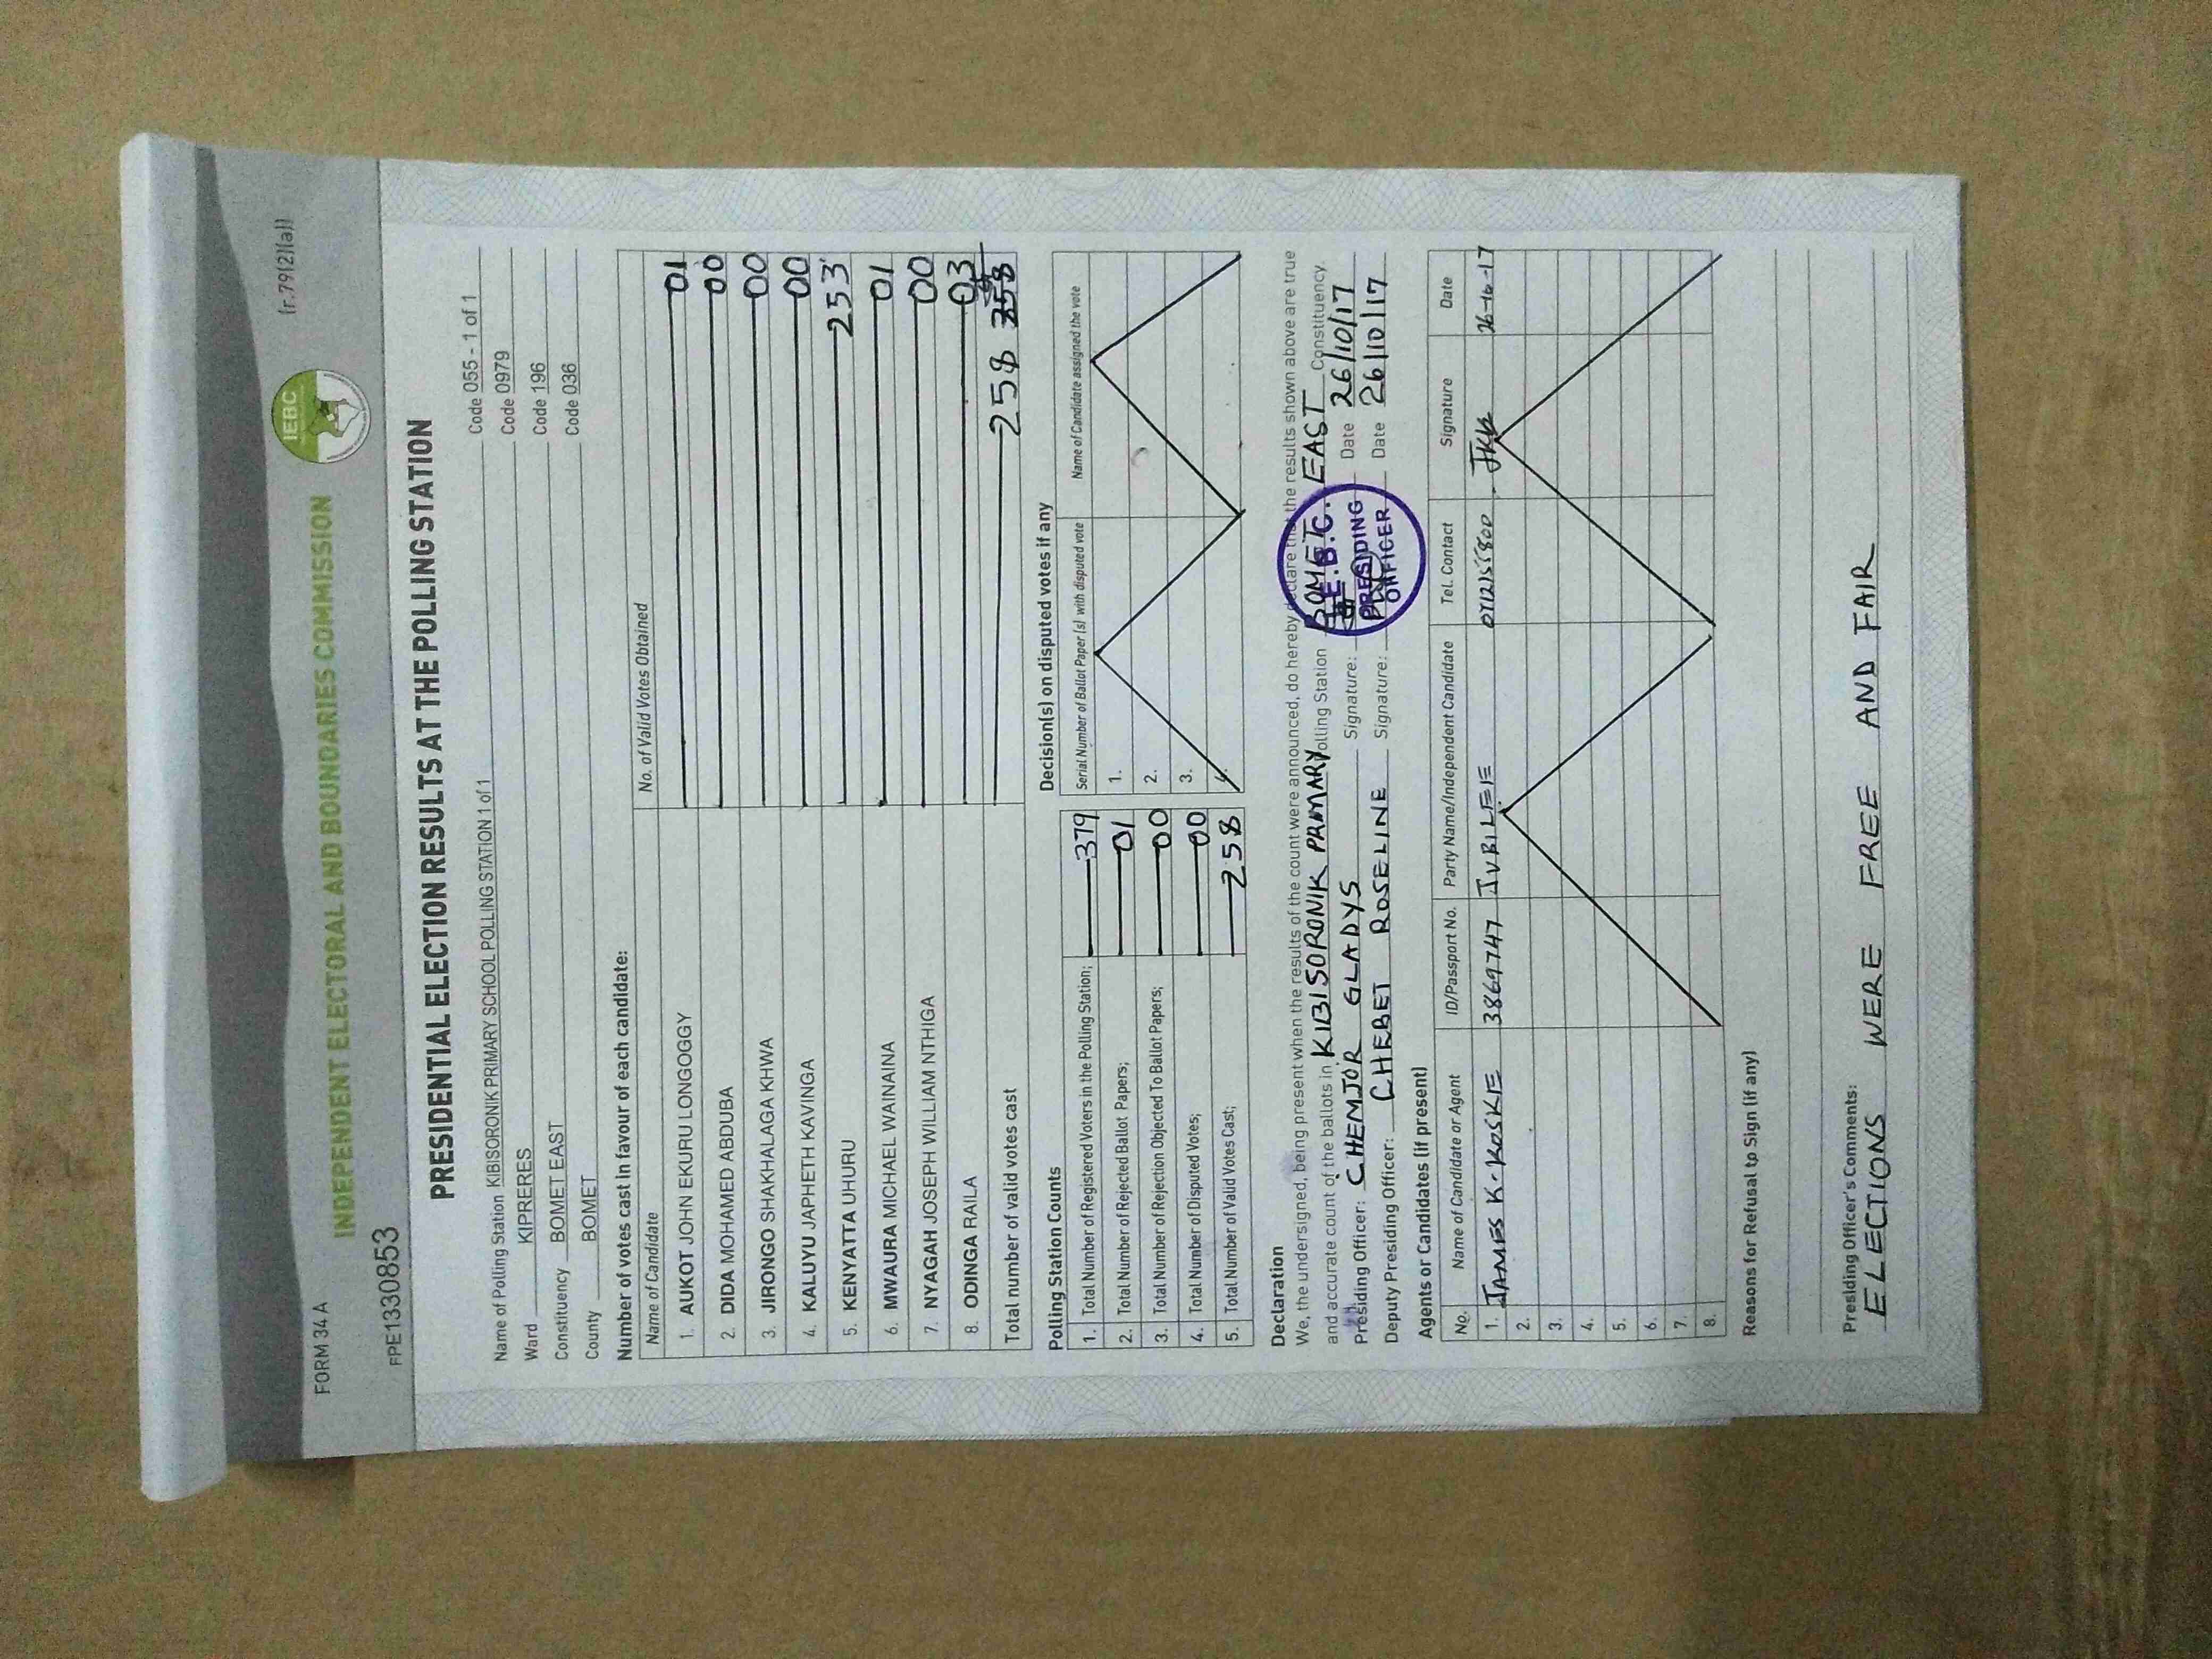 FORM 34 A
(r.79(2)(a))
IEBC
INDEPENDENT ELECTORAL AND BOUNDARIES COMMISSION
FPE1330853
PRESIDENTIAL ELECTION RESULTS AT THE POLLING STATION
Name of Polling Station KIBISORONIK PRIMARY SCHOOL POLLING STATION 1 of 1 Code 055 - 1 of 1
Ward KIPRERES Code 0979
Constituency BOMET EAST Code 196
County BOMET Code 036
Number of votes cast in favour of each candidate:
Name of Candidate No. of Valid Votes Obtained
1. AUKOT JOHN EKURU LONGOGGY 01
2. DIDA MOHAMED ABDUBA 00
3. JIRONGO SHAKHALAGA KHWA 00
4. KALUYU JAPHETH KAVINGA 00
5. KENYATTA UHURU 253
6. MWAURA MICHAEL WAINAINA 01
7. NYAGAH JOSEPH WILLIAM NTHIGA 00
8. ODINGA RAILA 03
Total number of valid votes cast 258
Polling Station Counts
1. Total Number of Registered Voters in the Polling Station; 379
2. Total Number of Rejected Ballot Papers; 01
3. Total Number of Rejection Objected To Ballot Papers; 00
4. Total Number of Disputed Votes; 00
5. Total Number of Valid Votes Cast; 258
Decision(s) on disputed votes if any
Serial Number of Ballot Paper (s) with disputed vote Name of Candidate assigned the vote
1.
2.
3.
4.
Declaration
We, the undersigned, being present when the results of the count were announced, do hereby declare that the results shown above are true
and accurate count of the ballots in KIBISORONIK PRIMARY Polling Station BOMET EAST Constituency.
Presiding Officer: CHEMJOR GLADYS Signature: Date 26/10/17
Deputy Presiding Officer: CHEBET ROSELINE Signature: Date 26/10/17
I.E.B.C.
PRESIDING
OFFICER
Agents or Candidates (if present)
No. Name of Candidate or Agent ID/Passport No. Party Name/Independent Candidate Tel. Contact Signature Date
1. JAMES K. KOSKIE 3869747 JUBILEE 26-10-17
2.
3.
4.
5.
6.
7.
8.
Reasons for Refusal to Sign (if any)
Presiding Officer's Comments:
ELECTIONS WERE FREE AND FAIR